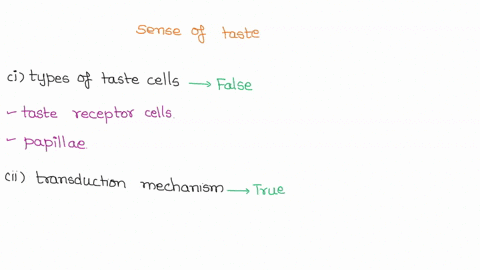 Sense of taste
(i) types of taste cells → False
- taste receptor cells.
- papillae
(ii) transduction mechanism → True